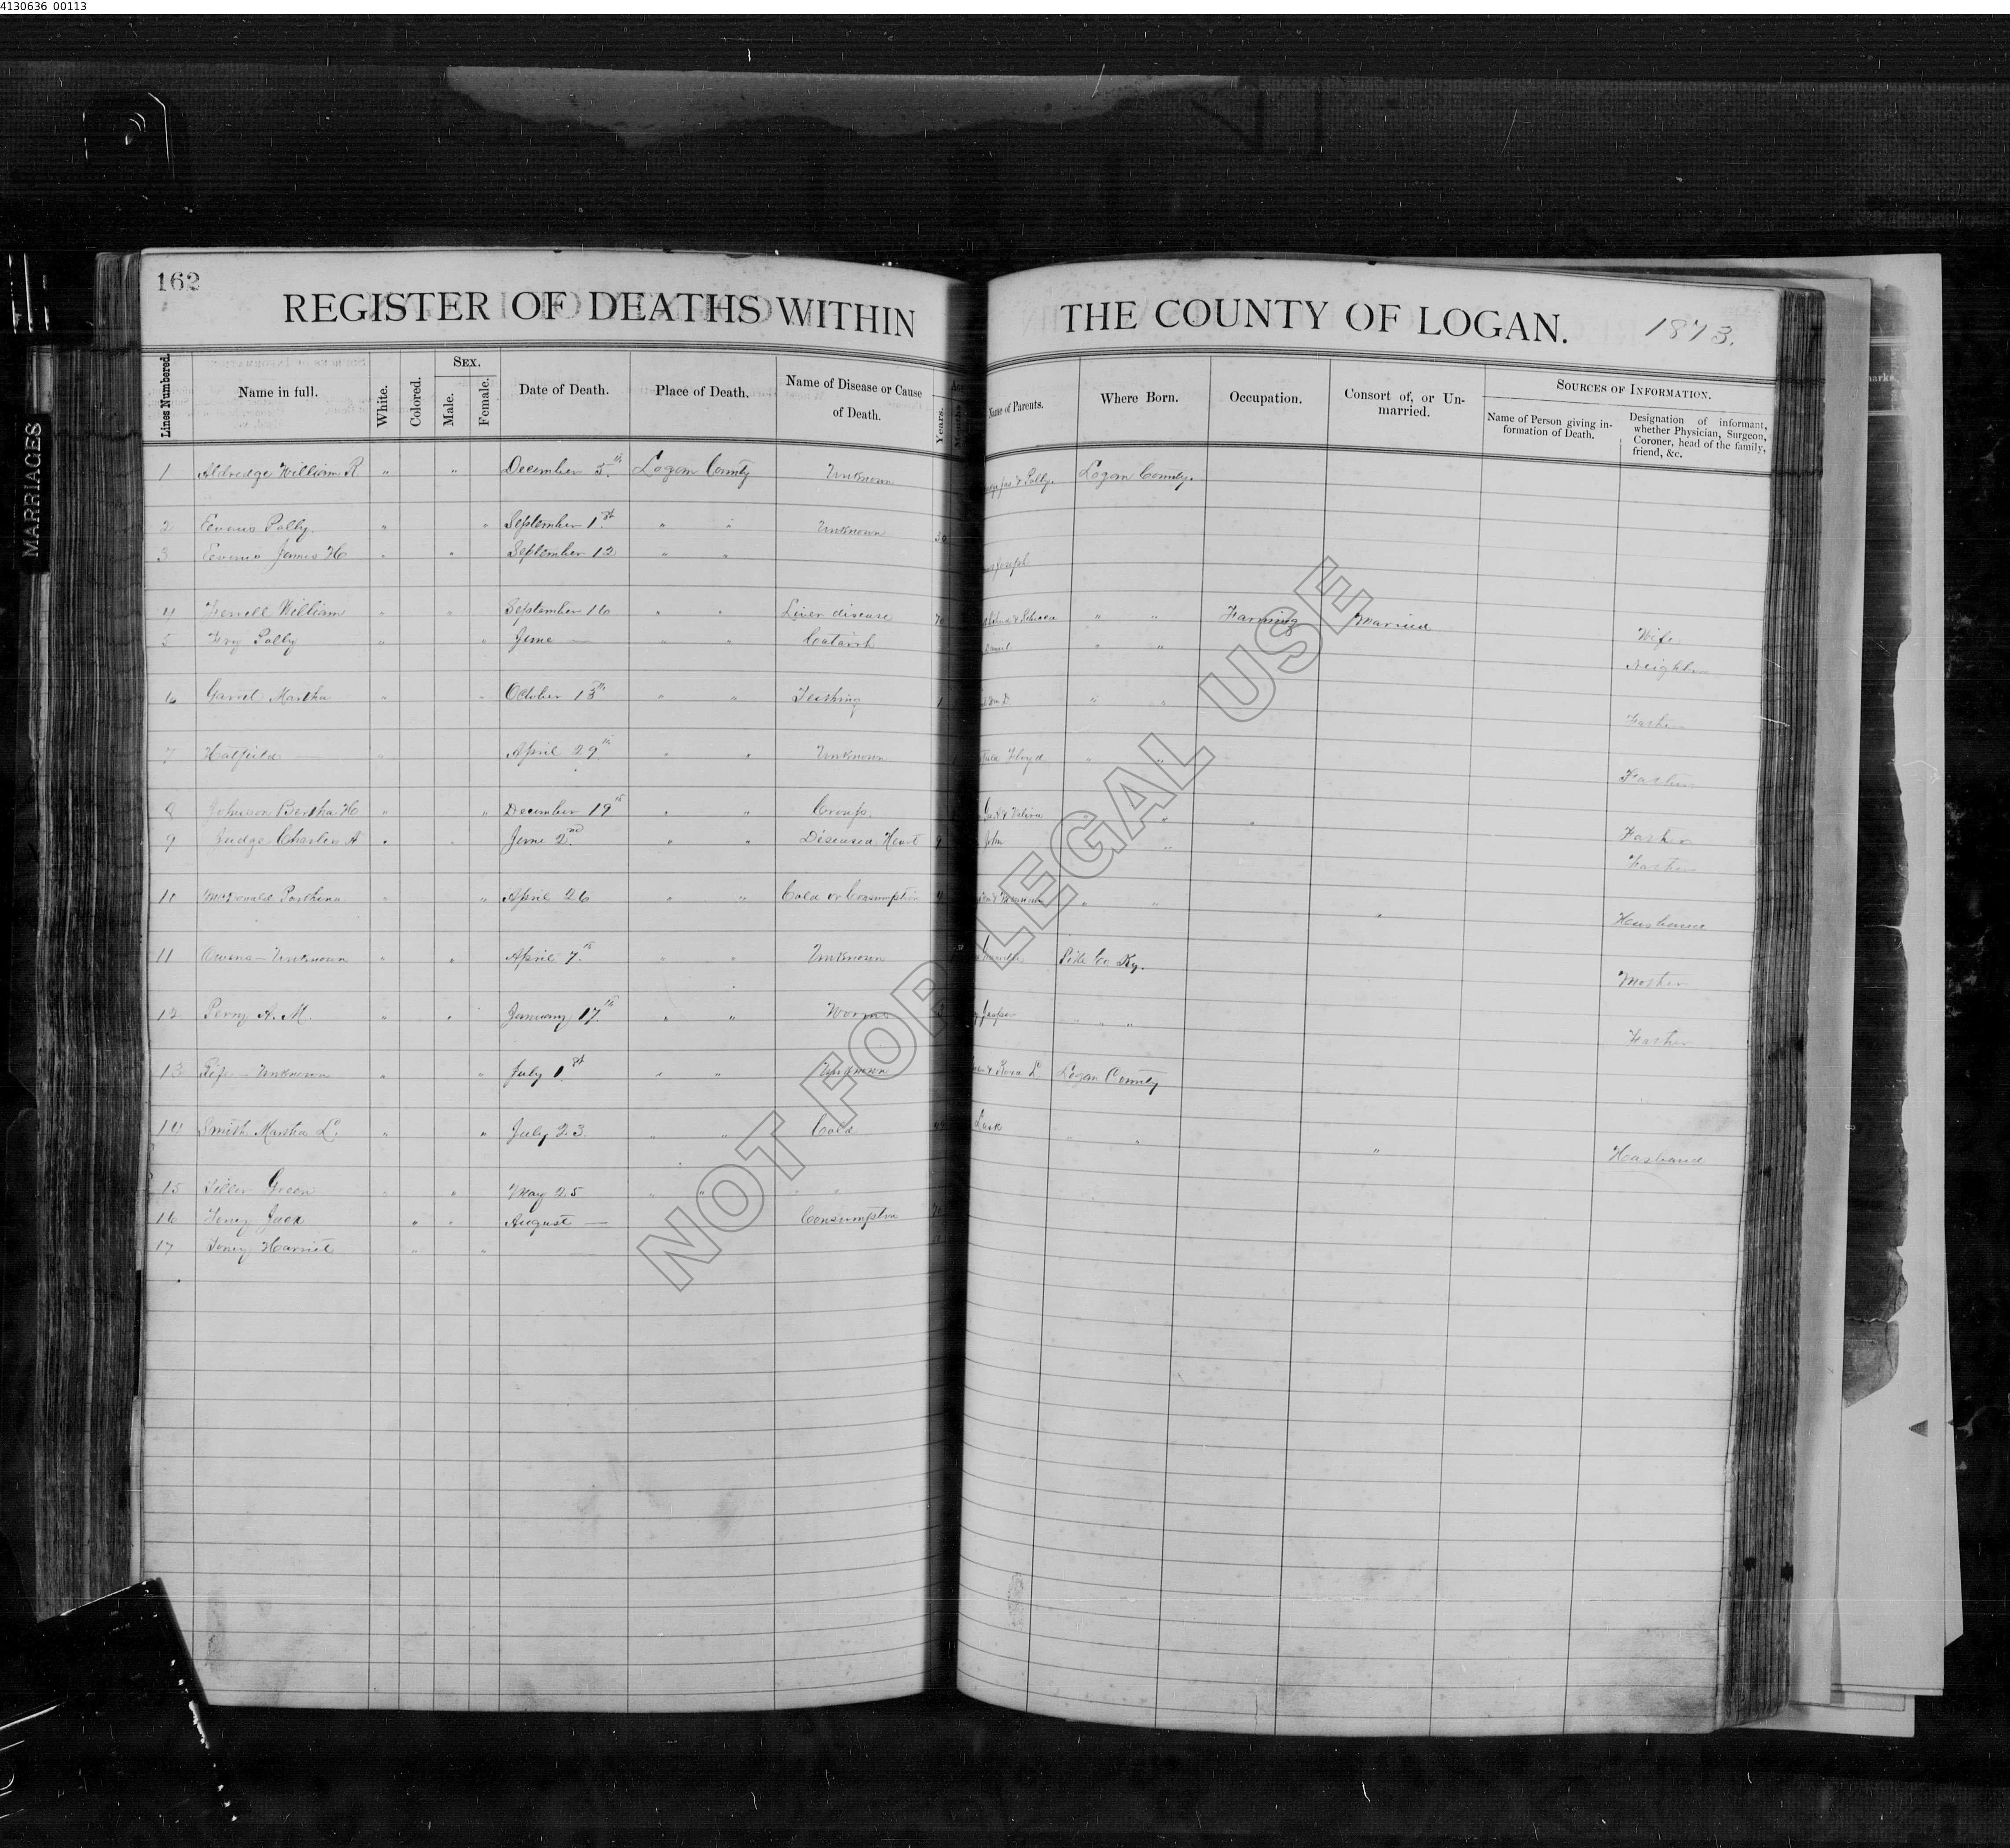 4130636_00113
MARRIAGES
162
REGISTER OF DEATHS WITHIN THE COUNTY OF LOGAN. 1873.
Lines Numbered. Name in full. White. Colored. Sex. Male. Female. Date of Death. Place of Death. Name of Disease or Cause of Death. Years. Months Name of Parents. Where Born. Occupation. Consort of, or Unmarried. Sources of Information. Name of Person giving information of Death. Designation of informant, whether Physician, Surgeon, Coroner, head of the family, friend, &c.
1 Aldredge William R " " December 5th Logan County Unknown & Polly Logan County.
2 Evans Polly. " " September 1st " " Unknown 30
3 Evans James H " " September 12 " " Joseph
4 Ferrell William " " September 16 " " Liver disease 70 & Rebecca " " Farming Married Wife
5 Fry Polly " " June — " " Catarrh " " Neighbor
6 Garret Martha " " October 13th " " Teething 1 " " Father
7 Hatfield " April 29th " " Unknown Floyd " " Father
8 Johnson Bertha H " " December 19th " " Croup. " " Father
9 Judge Charles A " " June 2nd " " Diseased Heart John " Father
10 McDonald Parthena " " April 26 " " Cold or Consumption " " " Husband
11 Owens — Unknown " " April 7th " " Unknown Pike Co Ky. Mother
12 Perry A. M. " " January 17th " " Worms Jasper " " " Father
13 Rife — Unknown " " July 1st " " Unknown & Rosa L Logan County
14 Smith Martha L. " " July 23 " " Cold Lusk " " " Husband
15 Tiller Green " " May 25 " " " "
16 Toney Jack " " August — Consumption
17 Toney Harriet " "
NOT FOR LEGAL USE